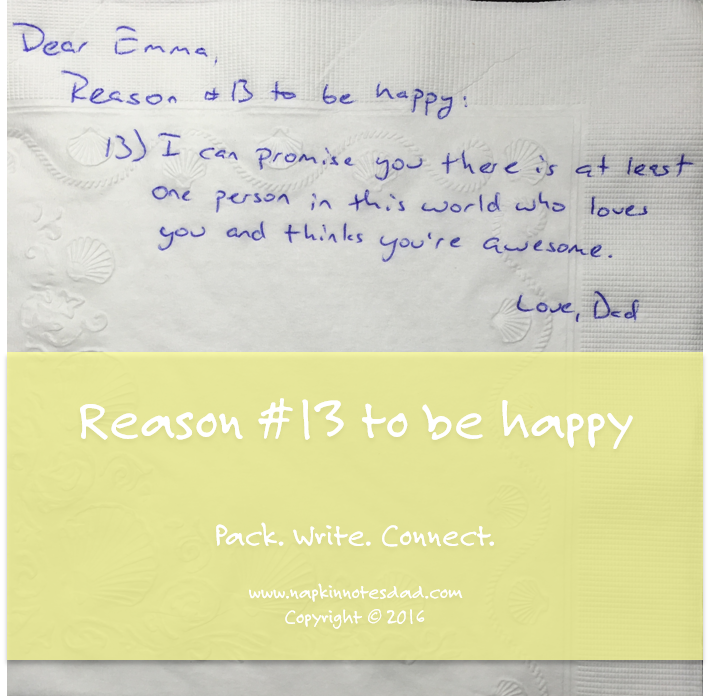 Dear Emma,
Reason #13 to be happy:
13) I can promise you there is at least
one person in this world who loves
you and thinks you're awesome.
Love, Dad
Reason #13 to be happy
Pack. Write. Connect.
www.napkinnotesdad.com
Copyright © 2016